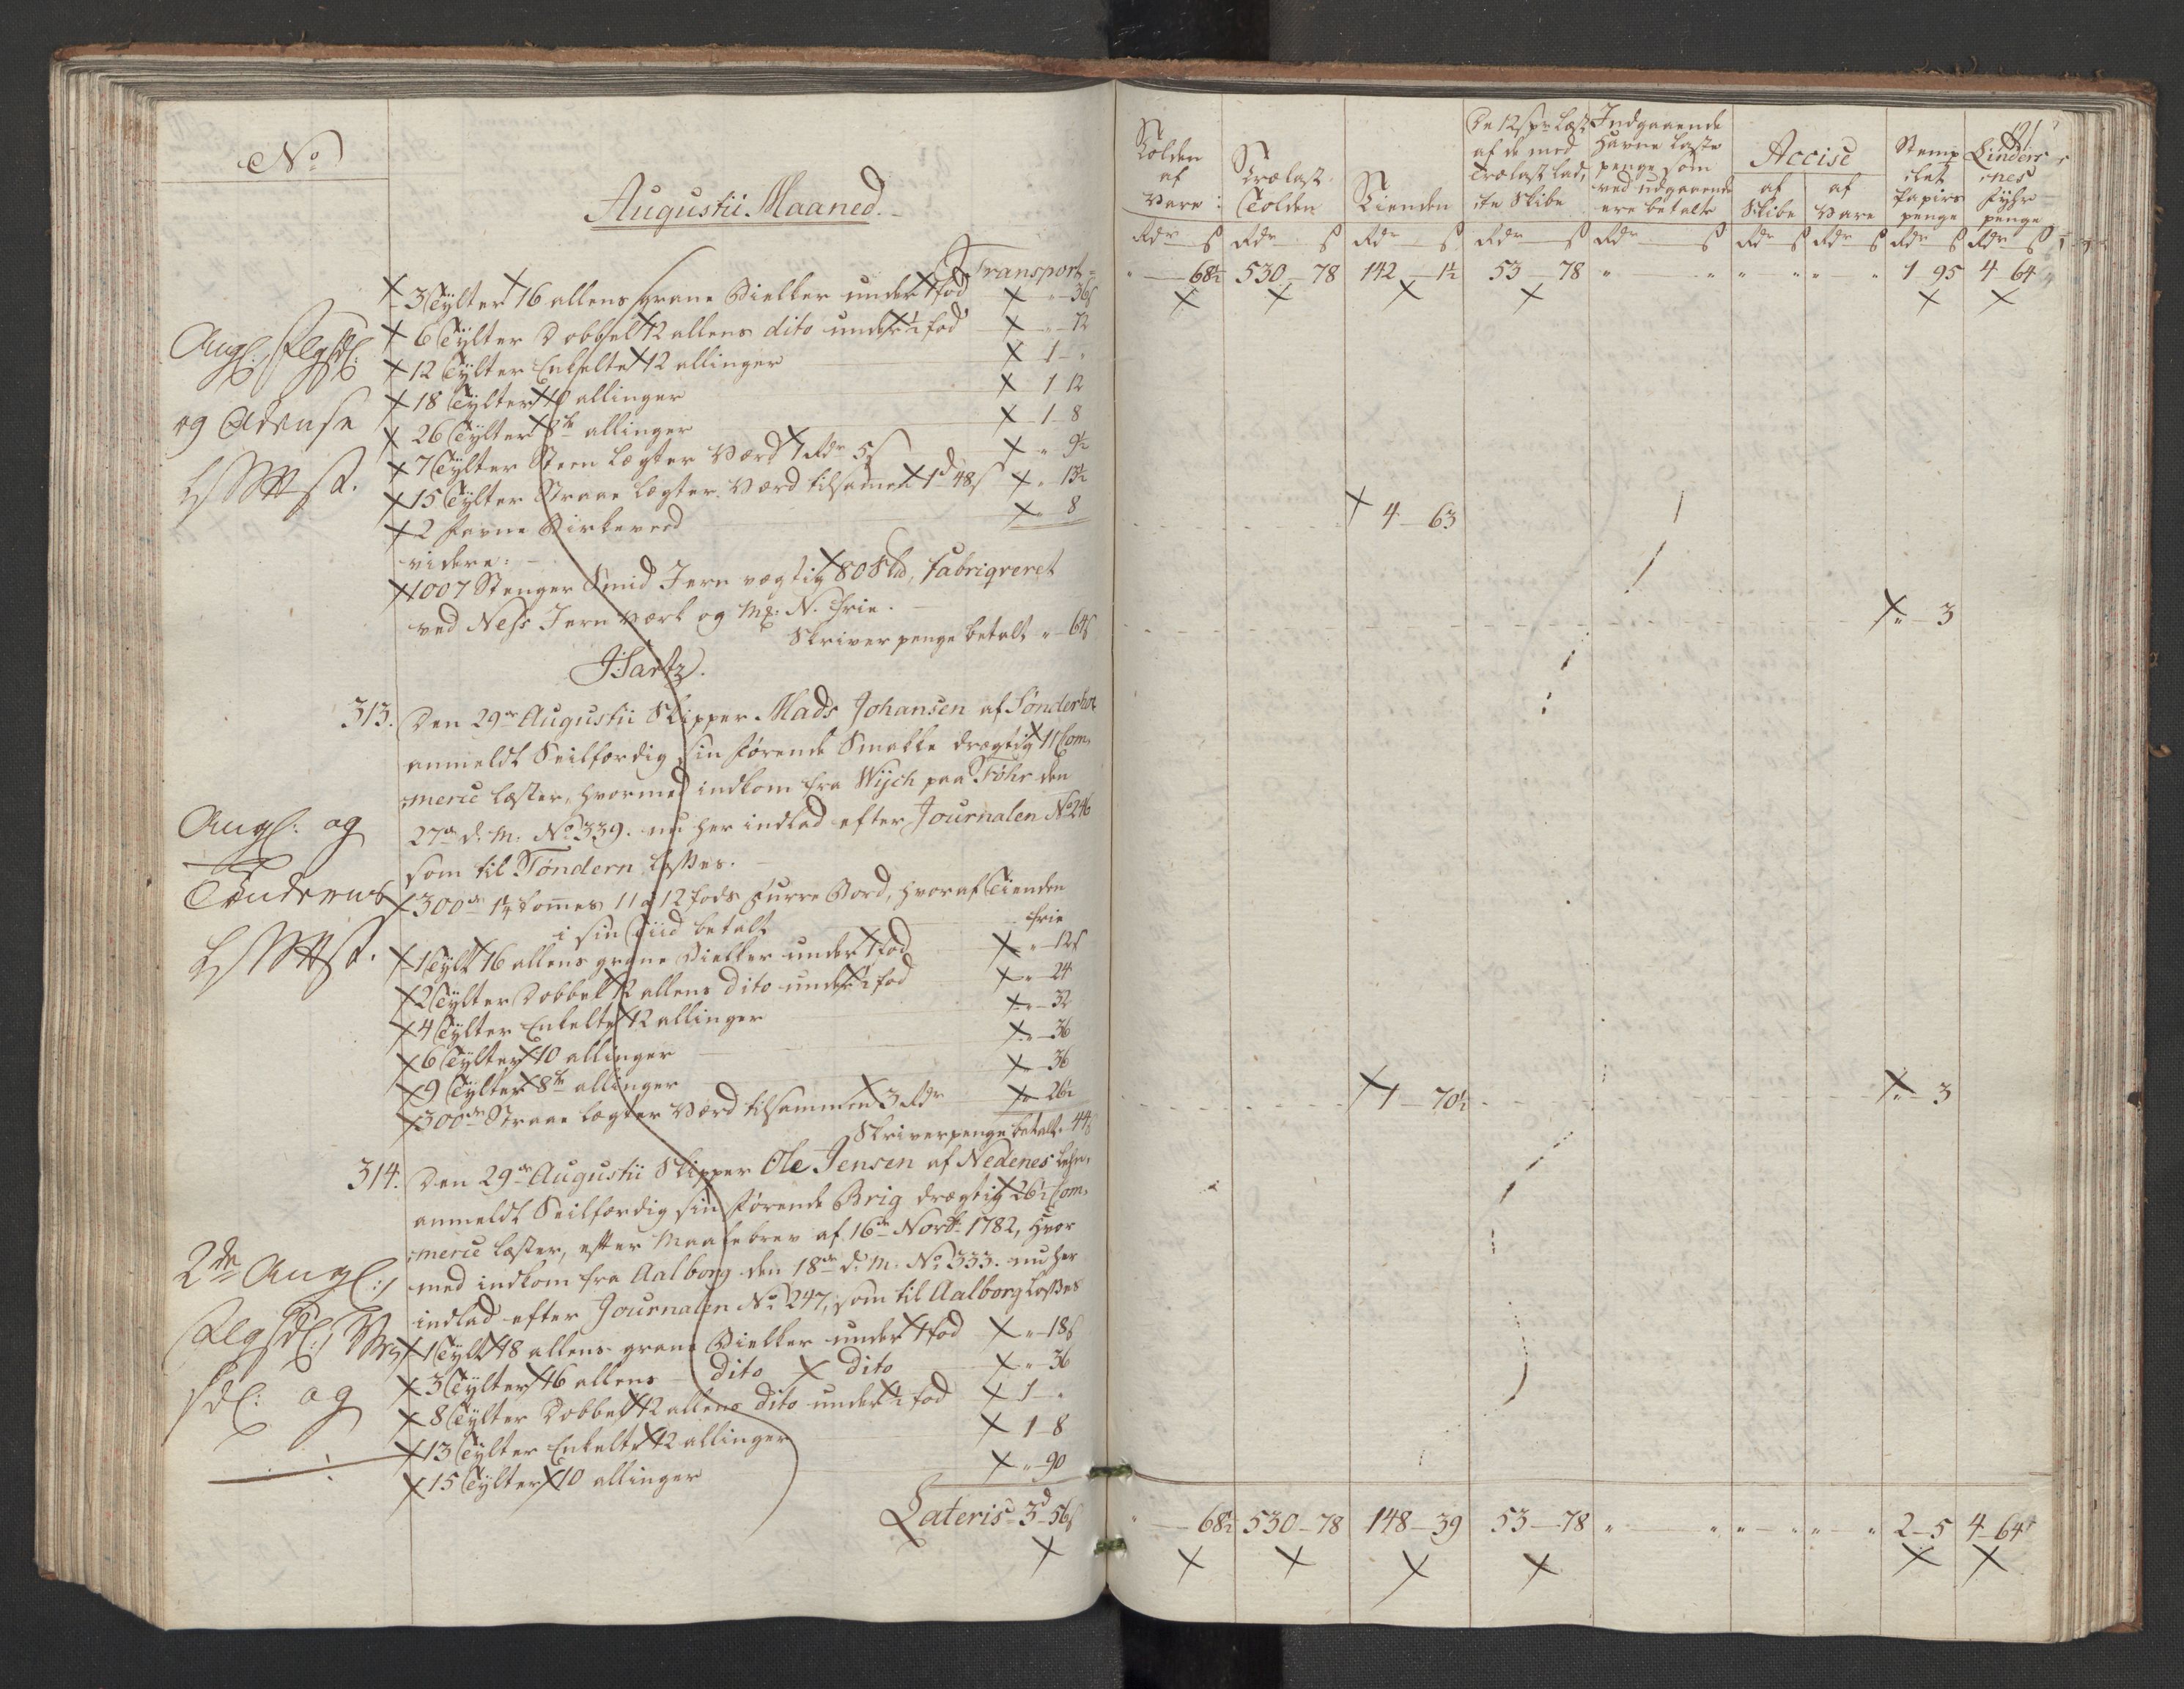 No
Augustii Maaned.
Transport =
3 Tylter 16 allens grane Bielker under 1 fod " 36 s
6 Tylter Dobbelt 12 allens dito under ½ fod " 72
12 Tylter Enkelte 12 allinger 1 - "
18 Tylter 10 allinger 1 12
26 Tylter 8te allinger 1 - 8
7 Tylter Steen Lægter værd 1 Rdr 5 s " 9½
15 Tylter Straae Lægter værd tilsamen 1 d 48 s " 13½
2 favne Birkeved " 8
videre:
1007 Stenger Smid Jern vægtig 80 Sklb, fabriqveret
ved Ness Jern værk og frie.
Skriver penge betalt " 64 s
og Odense
313. Den 29de Augustii Skipper Mads Johansen af Sønderhoe
anmeldt Seilfærdig sin førende Smakke drægtig 11 Com-
merce læster, hvormed indkom fra Wijch paa Föhr den
27de d: M. No 339. nu her indlad efter Journalen No 246
som til Tøndern losses.
300de 1¼ tommes 11 a 12 fods Furre Bord, hvoraf Tienden
i sin Tiid betalt frie
1 Tylt 16 allens grane Bielker under 1 fod " 12 s
2 Tylter Dobbelt 12 allens dito under ½ fod " 24
4 Tylter Enkelte 12 allinger " 32
6 Tylter 10 allinger " 36
9 Tylter 8te allinger " 36
300de Straae lægter værd tilsammen 3 Rdr " 26½
Skriverpenge betalt " 44 s
og
314. Den 29de Augustii Skipper Ole Jensen af Nedenes Lehn,
anmeldt Seilfærdig sin førende Brig drægtig 26½ Com-
merce læster, efter Maalebrev af 16de Novbr 1782, hvor
med indkom fra Aalborg den 18de d: M. No 333. nu her
indlad efter Journalen No 247, som til Aalborg losses
1 Tylt 18 allens grane Bielker under 1 fod " 18 s
3 Tylter 16 allens dito dito " 36
8 Tylter Dobbelt 12 allens dito under ½ fod 1 - "
13 Tylter Enkelte 12 allinger 1 - 8
15 Tylter 10 allinger " 90
og
Lateris 3 d 56 s
121
Tolden af Vare:
Trælast Tolden
Tienden
De 12 s pr læst af de med Trælast ladte Skibe
Indgaaende Havne laste penge som ved udgaaende ere betalte
Accise
af Skibe
af Vare
Stemplet Papirs penge
Lindesnes Fyhr penge
Rdr s Rdr s Rdr s Rdr s Rdr s Rdr s Rdr s Rdr s Rdr s
" 68½ 530 - 78 142 - 1½ 53 - 78 " " " " " " 1 95 4 64
4 - 63
" - 3
1 - 70½ " - 3
" 68½ 530 - 78 148 - 39 53 - 78 " " " " " " 2 - 5 4 - 64